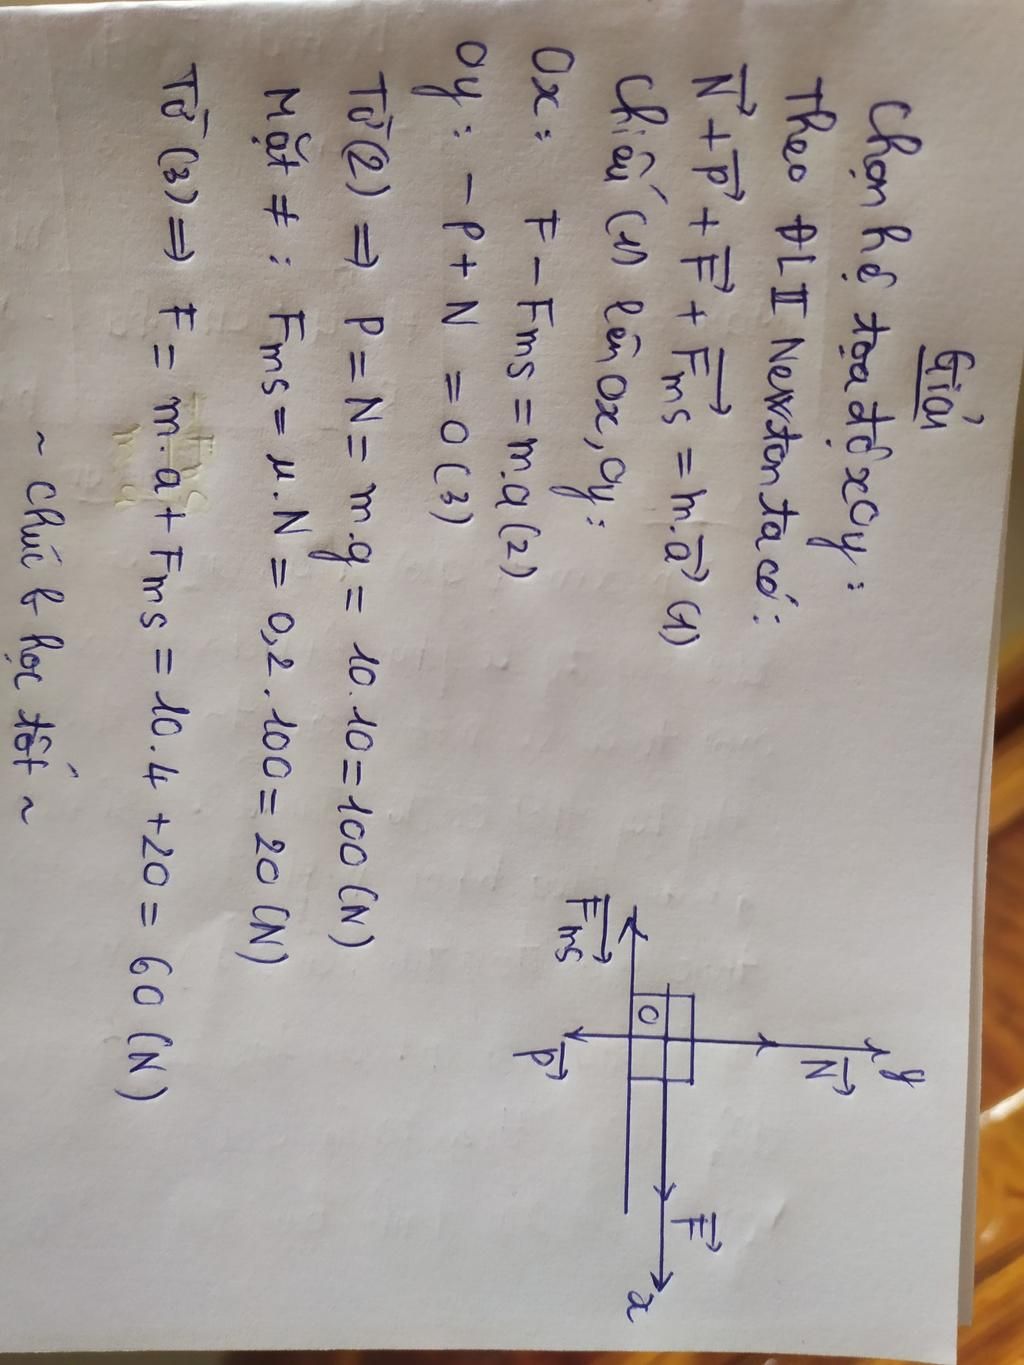 Giải
Chọn hệ tọa độ xOy:
Theo ĐL II Newton ta có:
N + P + F + Fms = m.a (1)
Chiếu (1) lên Ox, Oy:
Ox: F - Fms = m.a (2)
Oy: - P + N = 0 (3)
Từ (2) ⇒ P = N = m.g = 10.10 = 100 (N)
Mặt ≠ : Fms = μ.N = 0,2.100 = 20 (N)
Từ (3) ⇒ F = m.a + Fms = 10.4 + 20 = 60 (N)
~ Chúc b học tốt ~
y
N
O
Fms
P
F
x